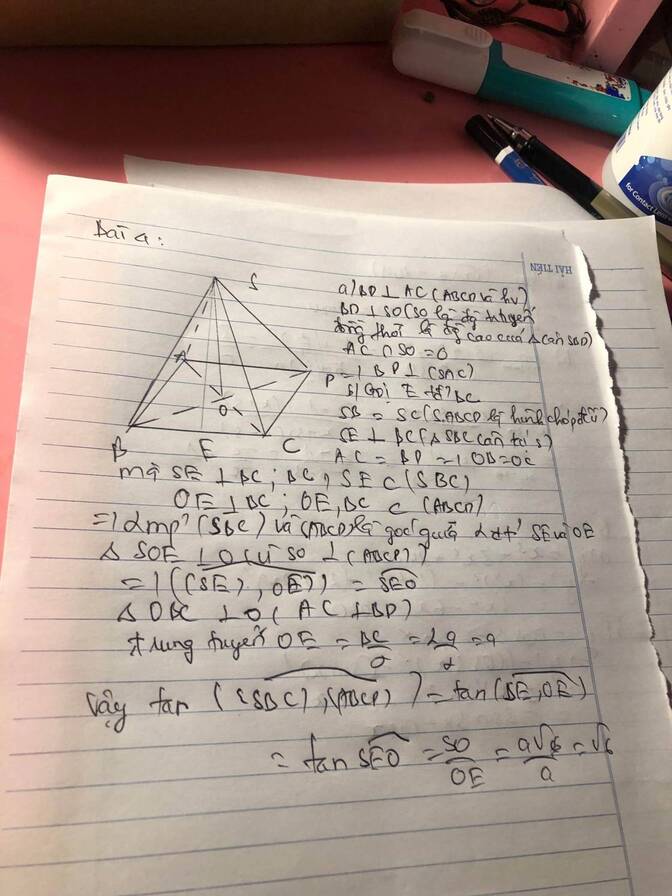 Bài 4:
HẢI TIẾN
for Contact
S
A
D
O
B
E
C
a) BD ⊥ AC (ABCD là hv)
BD ⊥ SO (SO là đg trung tuyến
đồng thời là đg cao của Δ cân SBD)
AC ∩ SO = O
=> BD ⊥ (SAC)
b) Gọi E tđ BC
SB = SC (S.ABCD là hình chóp đều)
SE ⊥ BC (Δ SBC cân tại S)
AC = BD => OB = OC
mà SE ⊥ BC; BC, SE ⊂ (SBC)
OE ⊥ BC; OE, BC ⊂ (ABCD)
=> 2 mp (SBC) và (ABCD) là góc giữa 2 đt SE và OE
Δ SOE ⊥ O (vì SO ⊥ (ABCD))
=> ((SE), OE)) = SEO
Δ OBC ⊥ O (AC ⊥ BD)
trung tuyến OE = BC/2 = 2a/2 = a
Vậy tan ((SBC), (ABCD)) = tan (SE, OE)
= tan SEO = SO/OE = a√6/a = √6